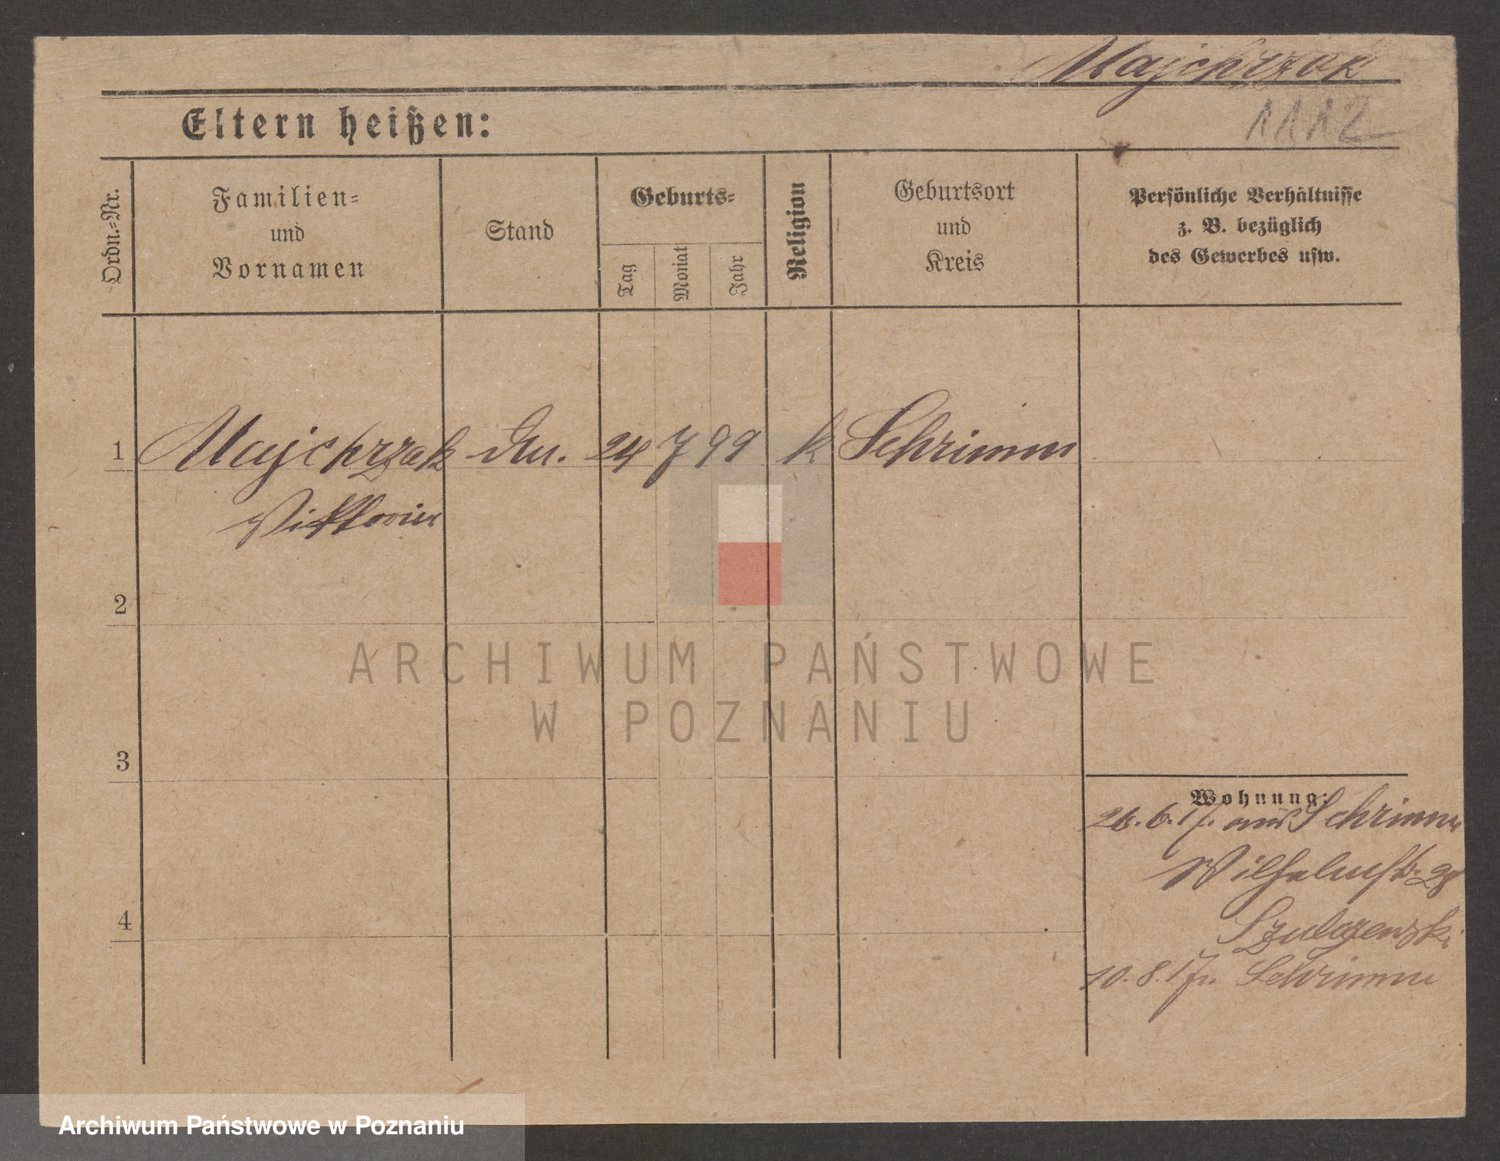 Majchrzak
Eltern heißen:
1112
Ordn.-Nr.
Familien-
und
Vornamen
Stand
Geburts-
Tag
Monat
Jahr
Religion
Geburtsort
und
Kreis
Persönliche Verhältnisse
z. B. bezüglich
des Gewerbes usw.
1 Majchrzak 24 7 99 k Schrimm
Viktoria
2
3
4
Wohnung:
26.6.17. aus Schrimm
Wilhelmstr.
Szulczewski
10.8.17 n. Schrimm
ARCHIWUM PAŃSTWOWE
W POZNANIU
Archiwum Państwowe w Poznaniu